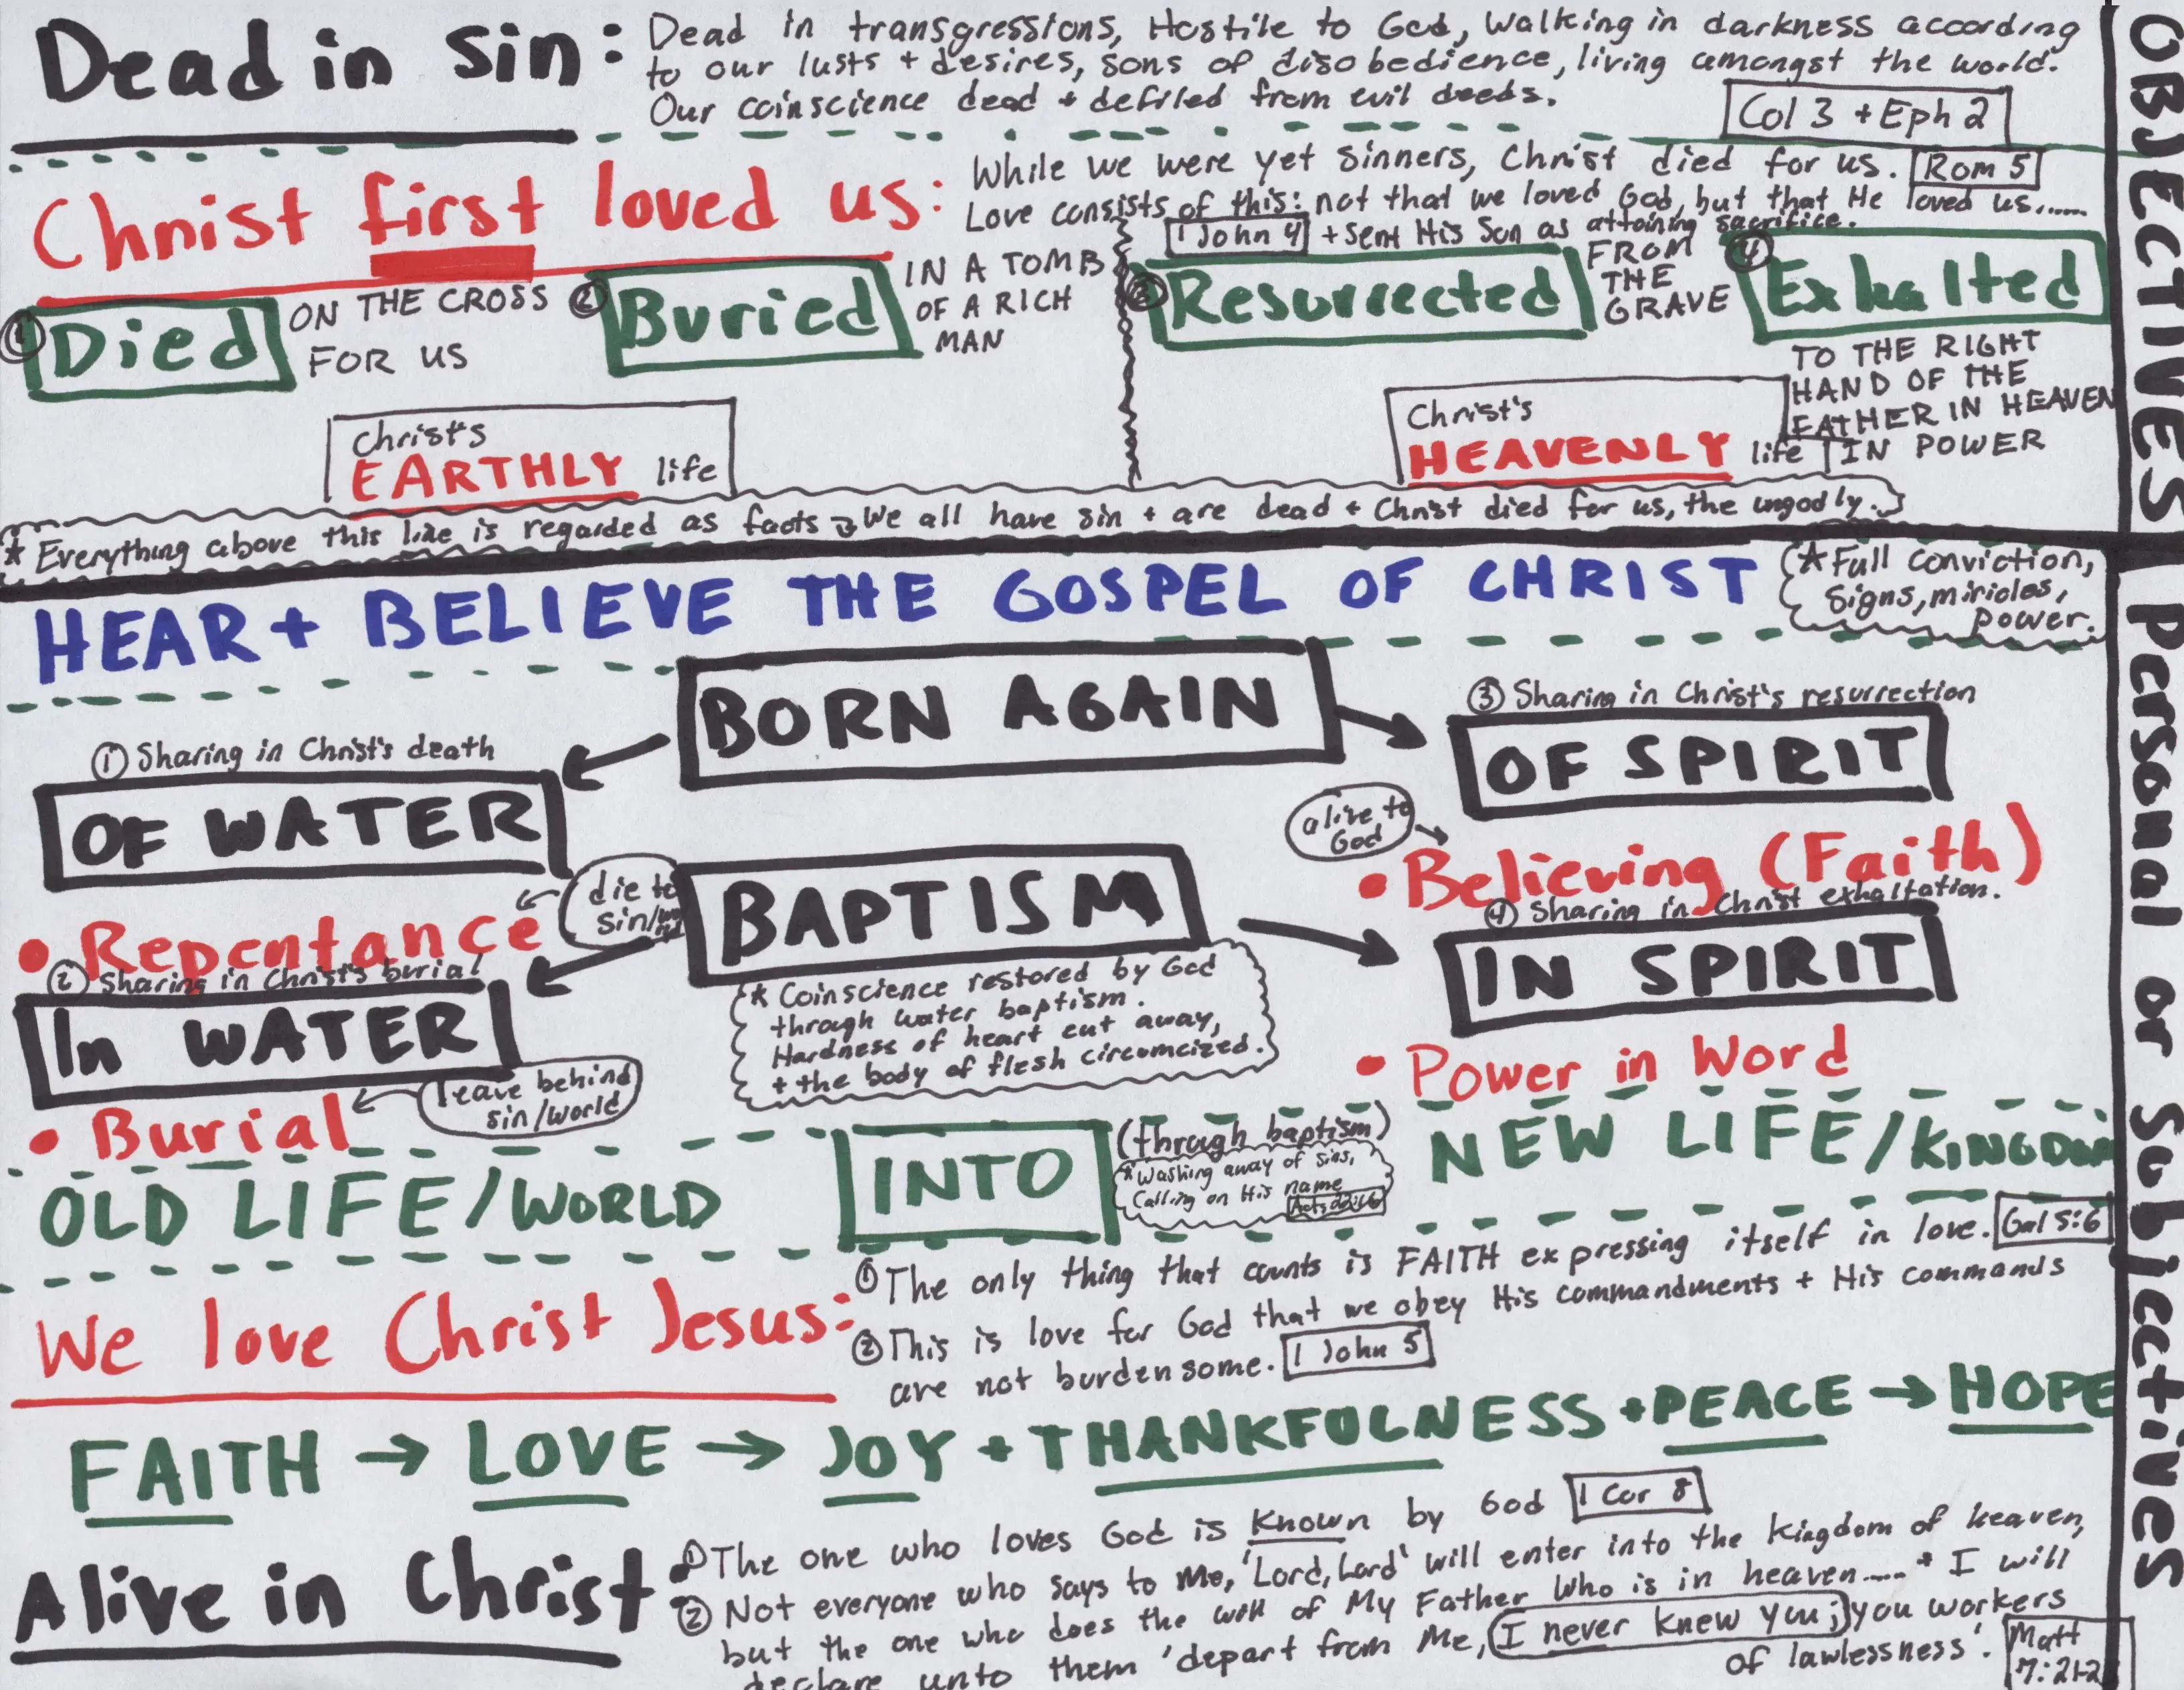 Dead in Sin:
Dead in transgressions, Hostile to God, Walking in darkness according
to our lusts + desires, sons of disobedience, living amongst the world.
Our coinscience dead + defiled from evil deeds.
Col 3 + Eph 2
OBJECTIVES
Christ first loved us:
While we were yet sinners, Christ died for us. Rom 5
Love consists of this: not that we loved God, but that He loved us......
1 John 4 + sent His Son as attoining sacrifice.
① Died
ON THE CROSS
FOR US
② Buried
IN A TOMB
OF A RICH
MAN
③ Resurrected
FROM
THE
GRAVE
④ Exhalted
TO THE RIGHT
HAND OF THE
FATHER IN HEAVEN
IN POWER
Christ's
EARTHLY life
Christ's
HEAVENLY life
* Everything above this line is regarded as facts → We all have sin + are dead + Christ died for us, the ungodly.
HEAR + BELIEVE THE GOSPEL OF CHRIST
* Full conviction,
signs, miricles,
power.
Personal or Subjectives
BORN AGAIN
① Sharing in Christ's death
OF WATER
③ Sharing in Christ's resurrection
OF SPIRIT
die to
sin/
• Repentance
alive to
God
• Believing (Faith)
BAPTISM
② Sharing in Christ's burial
In WATER
④ Sharing in Christ exhaltation.
IN SPIRIT
* Coinscience restored by God
through water baptism.
Hardness of heart cut away,
+ the body of flesh circumcized.
leave behind
sin/world
• Burial
• Power in Word
OLD LIFE/WORLD
INTO
(through baptism)
* Washing away of sins,
Calling on His name
NEW LIFE/KINGDOM
We love Christ Jesus:
① The only thing that counts is FAITH expressing itself in love. Gal 5:6
② This is love for God that we obey His commandments + His commands
are not burdensome. 1 John 5
FAITH → LOVE → JOY + THANKFULNESS + PEACE → HOPE
Alive in Christ:
① The one who loves God is Known by God 1 Cor 8
② Not everyone who says to Me, 'Lord, Lord' will enter into the kingdom of heaven,
but the one who does the will of My Father Who is in heaven..... + I will
declare unto them 'depart from Me, I never knew you; you workers
of lawlessness'.
Matt
7:21-2